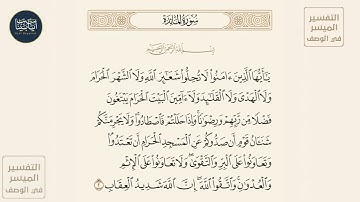 سُورَةُ المَائِدَةِ
بِسْمِ اللَّهِ الرَّحْمَٰنِ الرَّحِيمِ
يَٰٓأَيُّهَا ٱلَّذِينَ ءَامَنُوا۟ لَا تُحِلُّوا۟ شَعَٰٓئِرَ ٱللَّهِ وَلَا ٱلشَّهْرَ ٱلْحَرَامَ
وَلَا ٱلْهَدْىَ وَلَا ٱلْقَلَٰٓئِدَ وَلَآ ءَآمِّينَ ٱلْبَيْتَ ٱلْحَرَامَ يَبْتَغُونَ
فَضْلًا مِّن رَّبِّهِمْ وَرِضْوَٰنًا وَإِذَا حَلَلْتُمْ فَٱصْطَادُوا۟ وَلَا يَجْرِمَنَّكُمْ
شَنَـَٔانُ قَوْمٍ أَن صَدُّوكُمْ عَنِ ٱلْمَسْجِدِ ٱلْحَرَامِ أَن تَعْتَدُوا۟
وَتَعَاوَنُوا۟ عَلَى ٱلْبِرِّ وَٱلتَّقْوَىٰ وَلَا تَعَاوَنُوا۟ عَلَى ٱلْإِثْمِ
وَٱلْعُدْوَٰنِ وَٱتَّقُوا۟ ٱللَّهَ إِنَّ ٱللَّهَ شَدِيدُ ٱلْعِقَابِ ٢
التفسير
الميسر
في الوصف
التفسير
الميسر
في الوصف